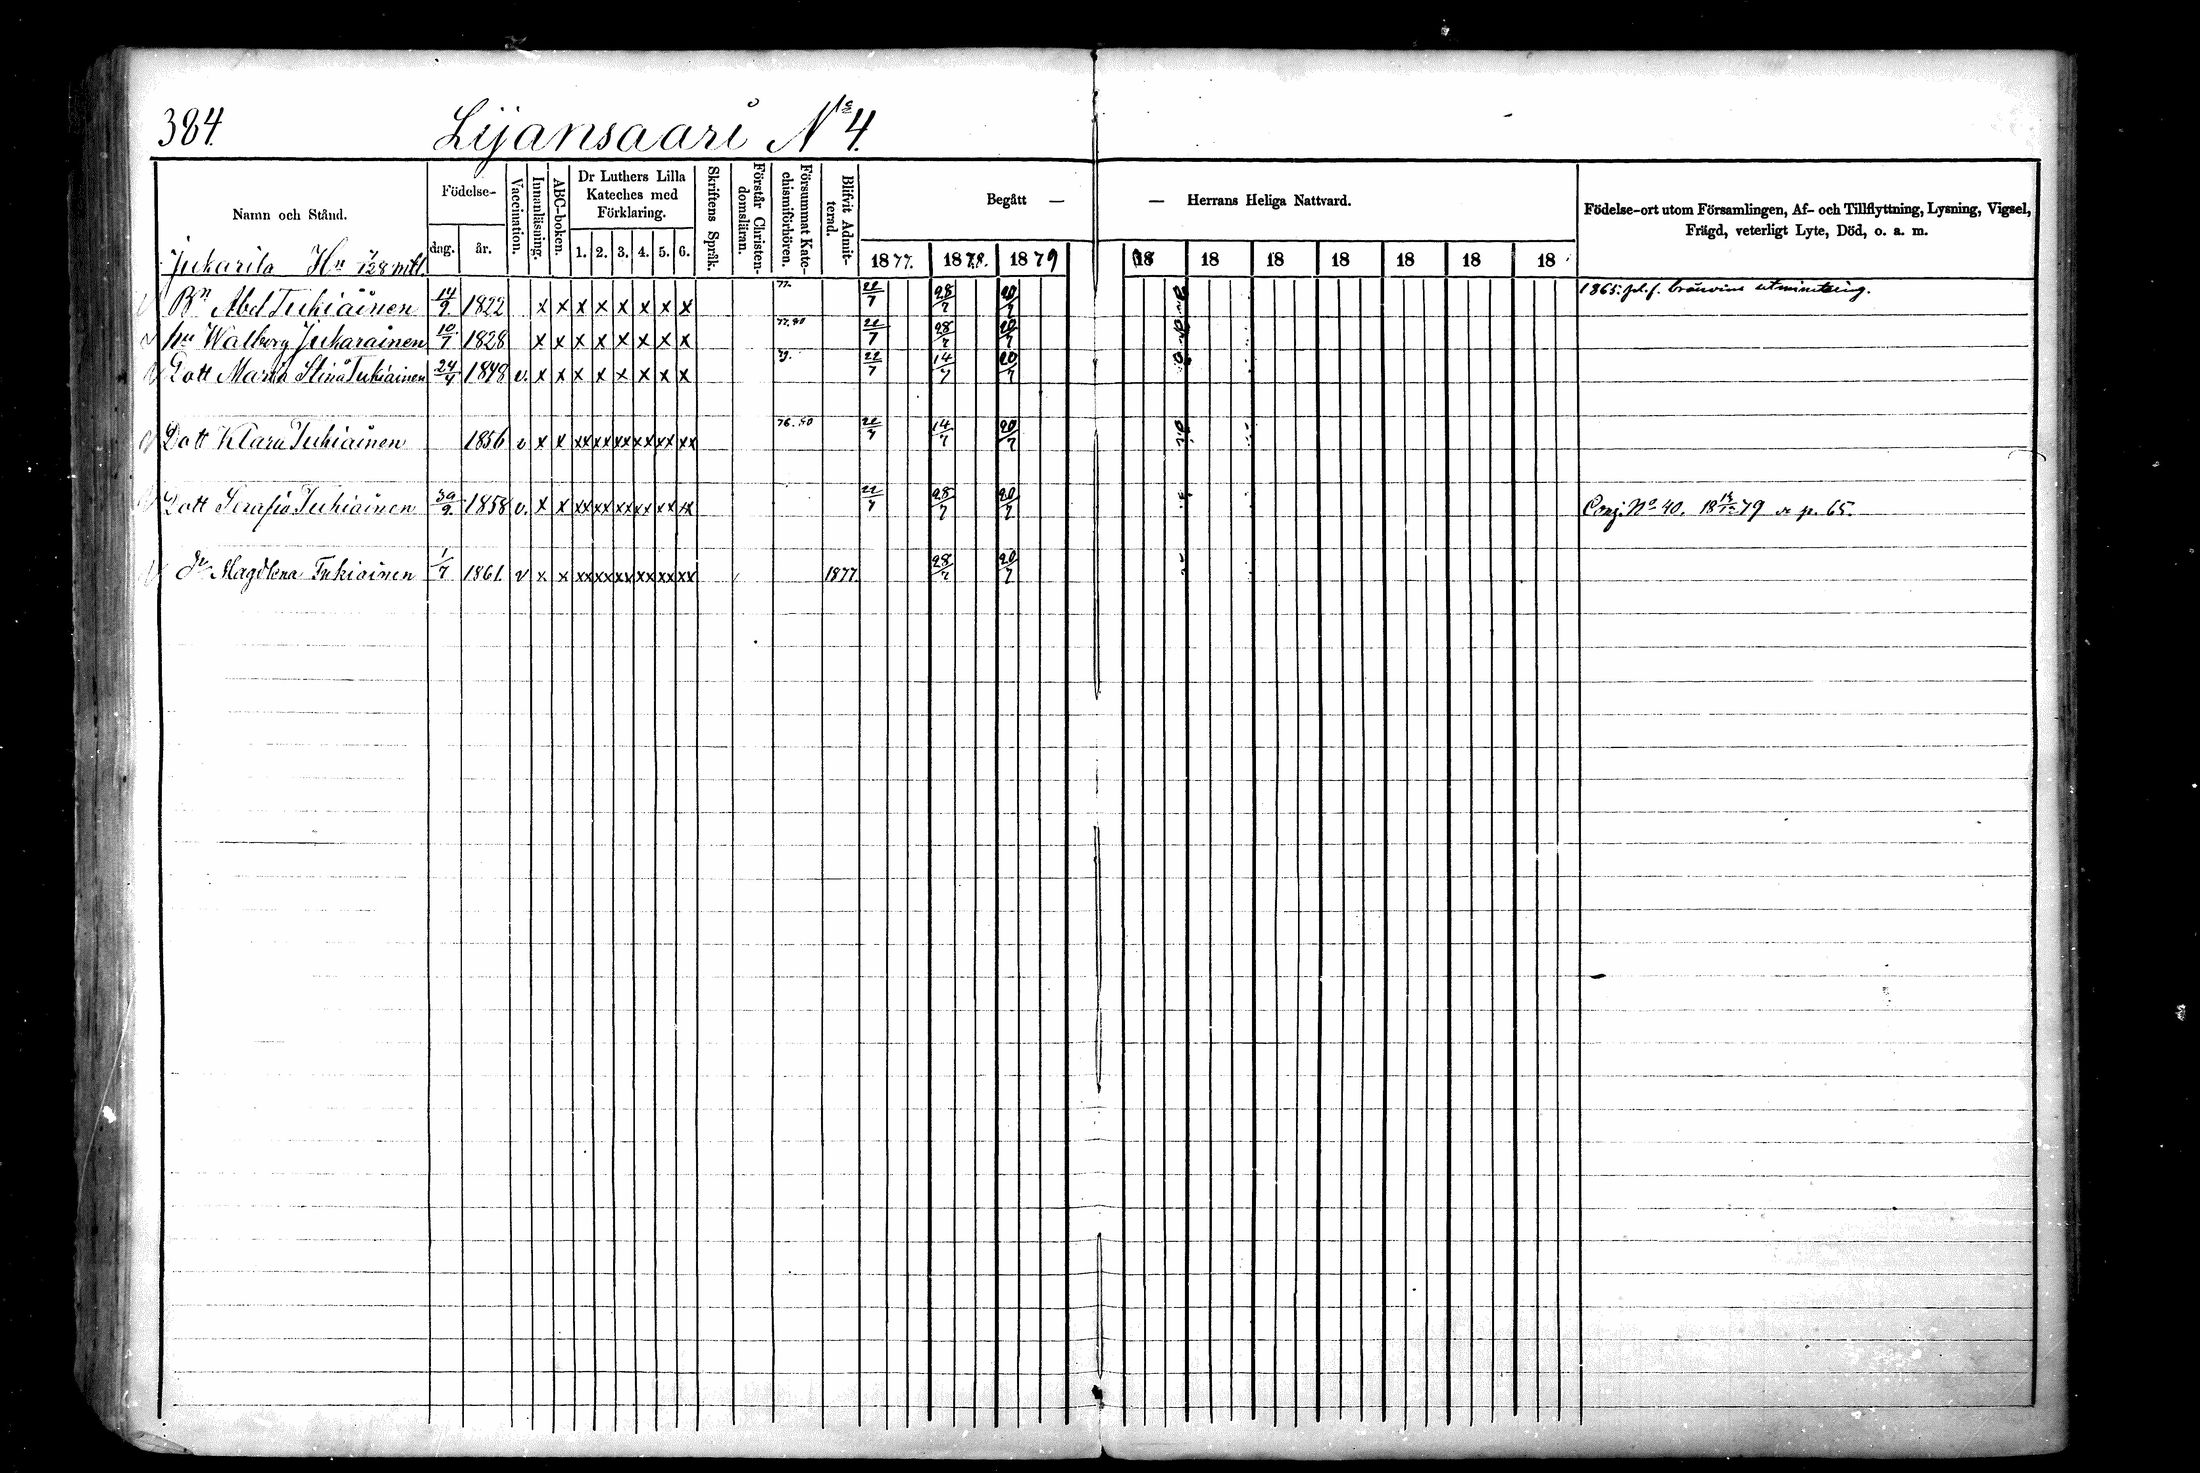 384.
Lijansaari No 4.
Namn och Stånd.
Födelse-
dag.
år.
Vaccination.
Innanläsning.
ABC-boken.
Dr Luthers Lilla Kateches med Förklaring.
1. 2. 3. 4. 5. 6.
Skriftens Språk.
Förstår Christendomsläran.
Försummat Katechismiförhören.
Blifvit Admitterad.
Begått — — Herrans Heliga Nattvard.
1877. 1878. 1879 18 18 18 18 18 18 18
Födelse-ort utom Församlingen, Af- och Tillflyttning, Lysning, Vigsel,
Frägd, veterligt Lyte, Död, o. a. m.
Jukarila Hn 7/28 mtl.
Bn Abel Tukiainen 14/9. 1822 x x x x x x x x 77. 22/7 28/7 20/7 1865. pl. f. bränvins utminutering.
hu Walborg Jukarainen 10/7 1828 x x x x x x x x 77. 80 22/7 28/7 20/7
Dott Maria Stina Tukiainen 24/4 1848 v. x x x x x x x x 79. 22/7 14/7 20/7
Dott Klara Tukiainen 1856 v x x xx xx xx xx xx xx 76. 80 22/7 14/7 20/7
Dott Serafia Tukiainen 30/9. 1858 v. x x xx xx xx xx xx xx 22/7 28/7 20/7 Conj. No 40. 18 79 p. 65.
Magdlena Tukiainen 1/7 1861. v x x xx xx xx xx xx xx 1877. 28/7 20/7